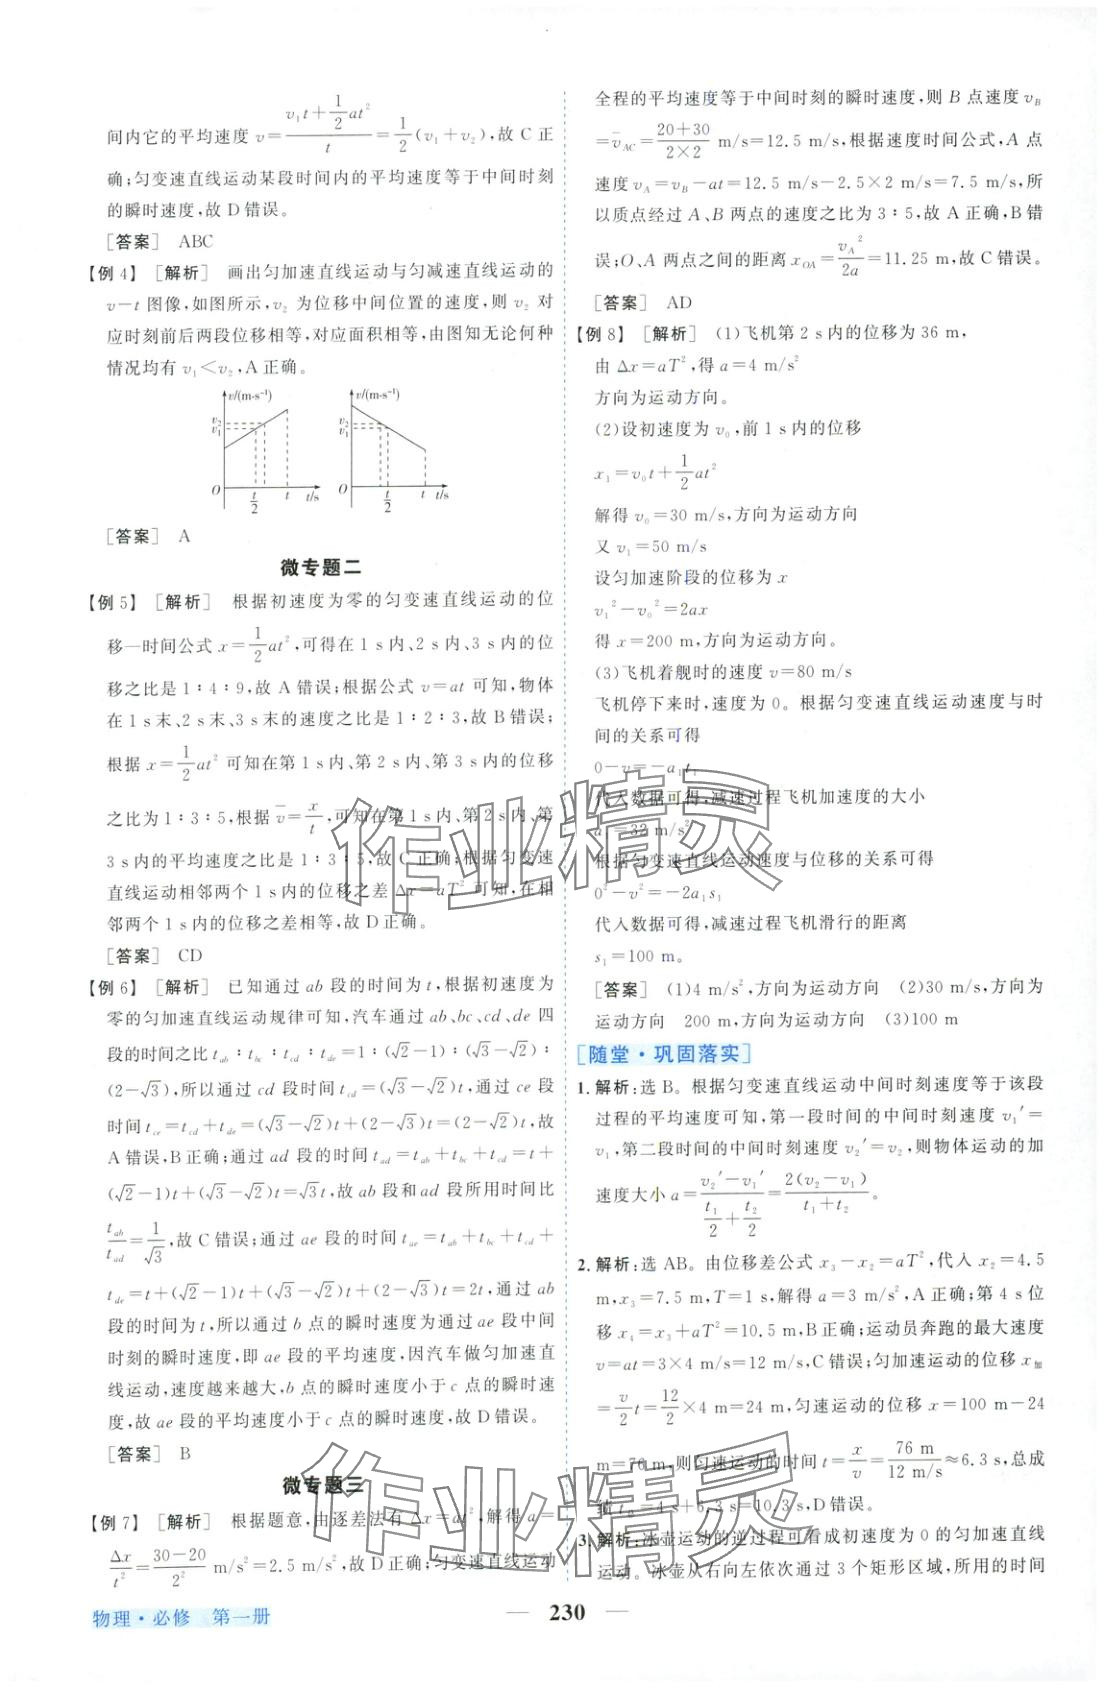 间内它的平均速度 v=(v₁t+½at²)/t=½(v₁+v₂),故 C 正
确;匀变速直线运动某段时间内的平均速度等于中间时刻
的瞬时速度,故 D 错误。
[答案] ABC
【例 4】 [解析] 画出匀加速直线运动与匀减速直线运动的
v-t 图像,如图所示,v₂ 为位移中间位置的速度,则 v₂ 对
应时刻前后两段位移相等,对应面积相等,由图知无论何种
情况均有 v₁<v₂,A 正确。
v/(m·s⁻¹) v₂ v₁ O t/2 t t/s
v/(m·s⁻¹) v₂ v₁ O t/2 t t/s
[答案] A
微专题二
【例 5】 [解析] 根据初速度为零的匀变速直线运动的位
移—时间公式 x=½at²,可得在 1 s 内、2 s 内、3 s 内的位
移之比是 1∶4∶9,故 A 错误;根据公式 v=at 可知,物体
在 1 s 末、2 s 末、3 s 末的速度之比是 1∶2∶3,故 B 错误;
根据 x=½at² 可知在第 1 s 内、第 2 s 内、第 3 s 内的位移
之比为 1∶3∶5,根据 v̄=x/t,可知在第 1 s 内、第 2 s 内、第
3 s 内的平均速度之比是 1∶3∶5,故 C 正确;根据匀变速
直线运动相邻两个 1 s 内的位移之差 Δx=aT² 可知,在相
邻两个 1 s 内的位移之差相等,故 D 正确。
[答案] CD
【例 6】 [解析] 已知通过 ab 段的时间为 t,根据初速度为
零的匀加速直线运动规律可知,汽车通过 ab、bc、cd、de 四
段的时间之比 t_ab∶t_bc∶t_cd∶t_de=1∶(√2-1)∶(√3-√2)∶
(2-√3),所以通过 cd 段时间 t_cd=(√3-√2)t,通过 ce 段
时间 t_ce=t_cd+t_de=(√3-√2)t+(2-√3)t=(2-√2)t,故
A 错误,B 正确;通过 ad 段的时间 t_ad=t_ab+t_bc+t_cd=t+
(√2-1)t+(√3-√2)t=√3t,故 ab 段和 ad 段所用时间比
t_ab/t_ad=1/√3,故 C 错误;通过 ae 段的时间 t_ae=t_ab+t_bc+t_cd+
t_de=t+(√2-1)t+(√3-√2)t+(2-√3)t=2t,通过 ab
段的时间为 t,所以通过 b 点的瞬时速度为通过 ae 段中间
时刻的瞬时速度,即 ae 段的平均速度,因汽车做匀加速直
线运动,速度越来越大,b 点的瞬时速度小于 c 点的瞬时速
度,故 ae 段的平均速度小于 c 点的瞬时速度,故 D 错误。
[答案] B
微专题三
【例 7】 [解析] 根据题意,由逐差法有 Δx=at²,解得 a=
Δx/t²=(30-20)/2² m/s²=2.5 m/s²,故 D 正确;匀变速直线运动
全程的平均速度等于中间时刻的瞬时速度,则 B 点速度 v_B
=v̄_AC=(20+30)/(2×2) m/s=12.5 m/s,根据速度时间公式,A 点
速度 v_A=v_B-at=12.5 m/s-2.5×2 m/s=7.5 m/s,所
以质点经过 A、B 两点的速度之比为 3∶5,故 A 正确,B 错
误;O、A 两点之间的距离 x_OA=v_A²/2a=11.25 m,故 C 错误。
[答案] AD
【例 8】 [解析] (1)飞机第 2 s 内的位移为 36 m,
由 Δx=aT²,得 a=4 m/s²
方向为运动方向。
(2)设初速度为 v₀,前 1 s 内的位移
x₁=v₀t+½at²
解得 v₀=30 m/s,方向为运动方向
又 v₁=50 m/s
设匀加速阶段的位移为 x
v₁²-v₀²=2ax
得 x=200 m,方向为运动方向。
(3)飞机着舰时的速度 v=80 m/s
飞机停下来时,速度为 0。根据匀变速直线运动速度与时
间的关系可得
0-v=-a₁t₁
代入数据可得,减速过程飞机加速度的大小
a₁=32 m/s²
根据匀变速直线运动速度与位移的关系可得
0²-v²=-2a₁s₁
代入数据可得,减速过程飞机滑行的距离
s₁=100 m。
[答案] (1)4 m/s²,方向为运动方向 (2)30 m/s,方向为
运动方向 200 m,方向为运动方向 (3)100 m
[随堂·巩固落实]
1. 解析:选 B。根据匀变速直线运动中间时刻速度等于该段
过程的平均速度可知,第一段时间的中间时刻速度 v₁′=
v₁,第二段时间的中间时刻速度 v₂′=v₂,则物体运动的加
速度大小 a=(v₂′-v₁′)/(t₁/2+t₂/2)=2(v₂-v₁)/(t₁+t₂)。
2. 解析:选 AB。由位移差公式 x₃-x₂=aT²,代入 x₂=4.5
m,x₃=7.5 m,T=1 s,解得 a=3 m/s²,A正确;第 4 s 位
移 x₄=x₃+aT²=10.5 m,B 正确;运动员奔跑的最大速度
v=at=3×4 m/s=12 m/s,C 错误;匀加速运动的位移 x加
=v/2 t=12/2×4 m=24 m,匀速运动的位移 x=100 m-24
m=76 m,则匀速运动的时间 t=x/v=76 m/12 m/s≈6.3 s,总成
绩 t总=4 s+6.3 s=10.3 s,D 错误。
3. 解析:冰壶运动的逆过程可看成初速度为 0 的匀加速直线
运动。冰壶从右向左依次通过 3 个矩形区域,所用的时间
物理·必修 第一册
230
作业精灵
作业精灵